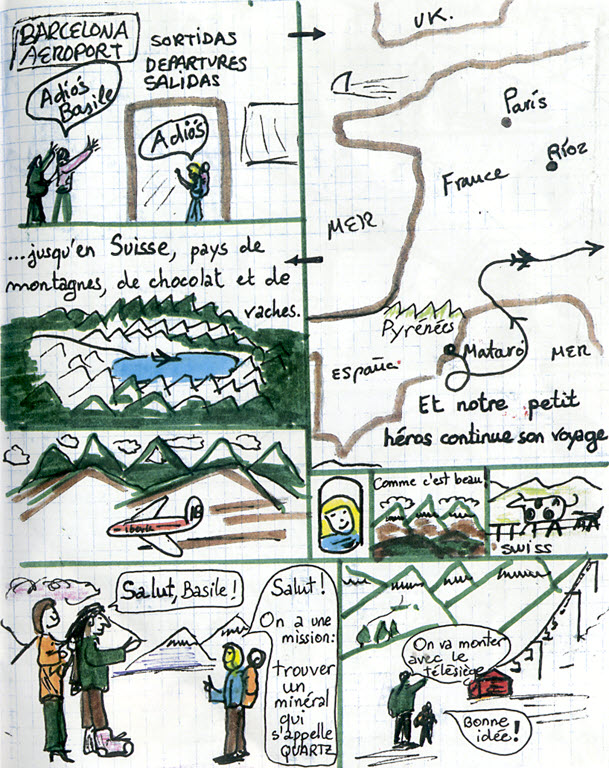 BARCELONA
AEROPORT
SORTIDAS
DEPARTURES
SALIDAS
Adiós
Basile
Adiós
UK.
París
Ríoz
France
MER
Pyrénées
Mataró
MER
ESPAÑA
Et notre petit
héros continue son voyage
...jusqu'en Suisse, pays de
montagnes, de chocolat et de
vaches.
iberia
IB
Comme c'est beau
SWISS
Salut, Basile!
Salut!
On a une
mission:
trouver
un
minéral
qui
s'appelle
QUARTZ
On va monter
avec le
télésiège
Bonne
idée!